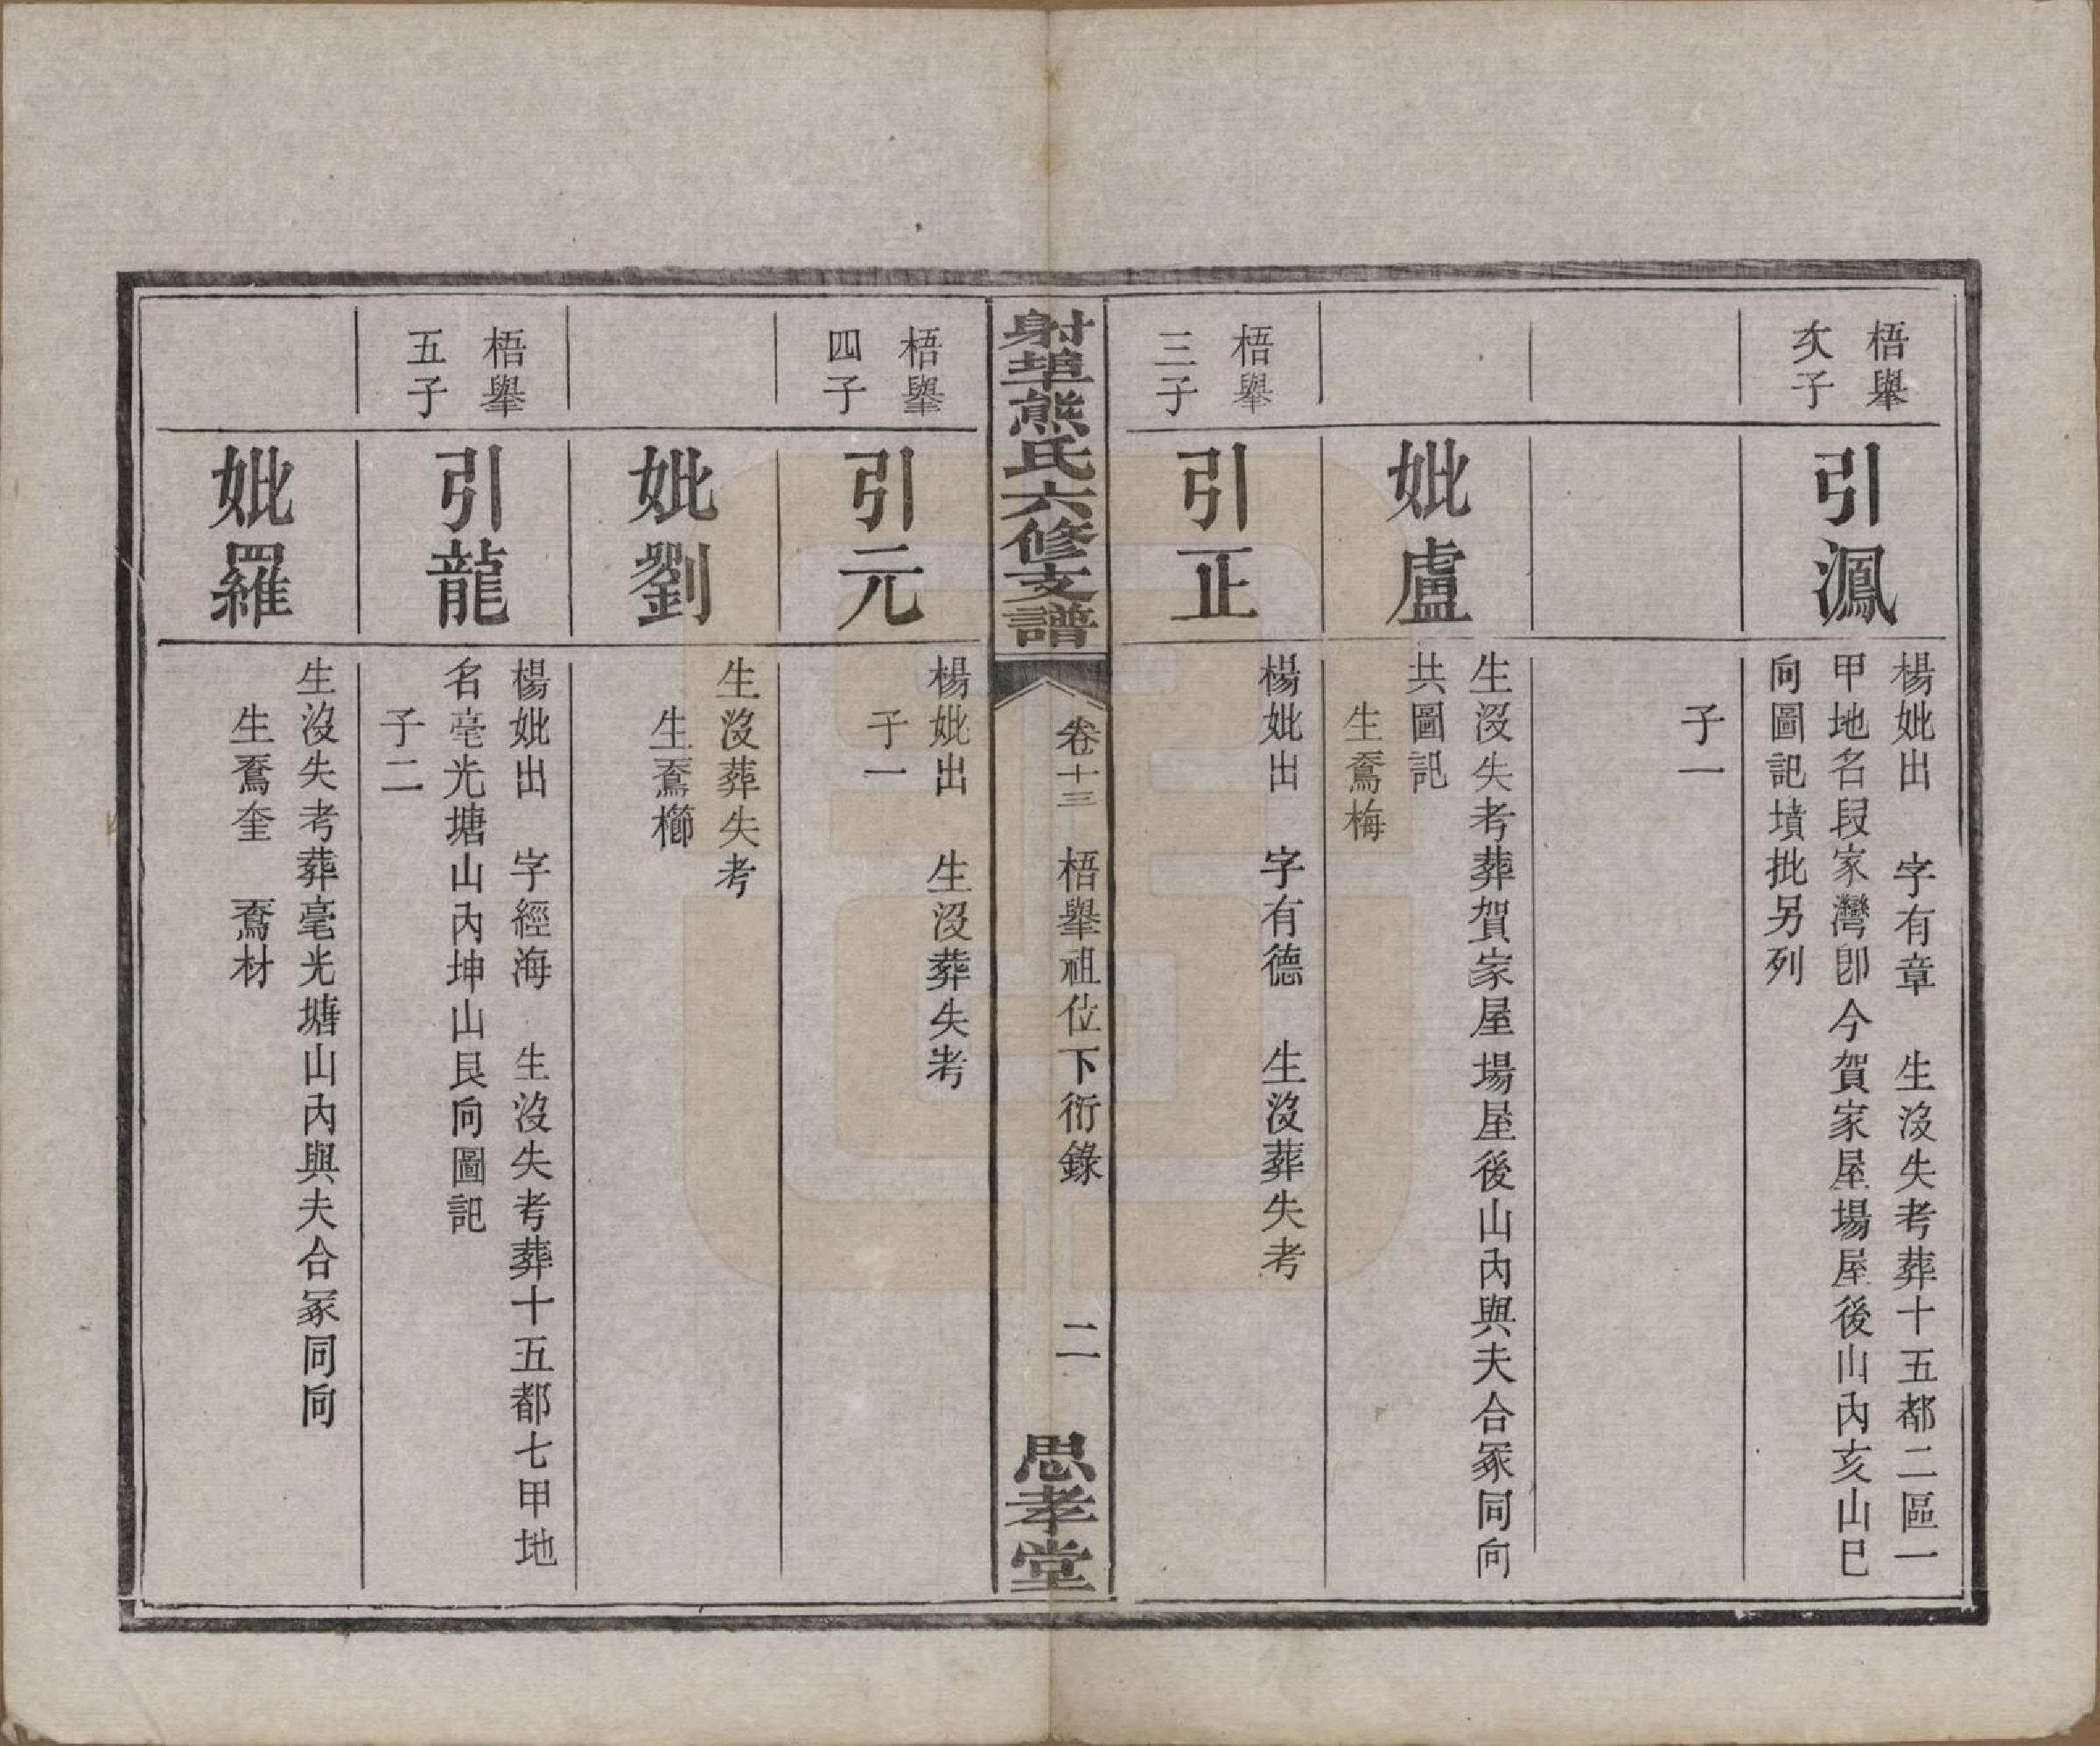 梧舉
次子
引鳳
楊妣出　字有章　生沒失考葬十五都二區一
甲地名段家灣卽今賀家屋場屋後山內亥山巳
向圖記墳批另列
子一
妣盧
生沒失考葬賀家屋場屋後山內與夫合冢同向
共圖記
生鶱梅
梧舉
三子
引正
楊妣出　字有德　生沒葬失考
射埠熊氏六修支譜
卷十三　梧舉祖位下衍錄
二
思孝堂
梧舉
四子
引元
楊妣出　生沒葬失考
子一
妣劉
生沒葬失考
生鶱櫛
梧舉
五子
引龍
楊妣出　字經海　生沒失考葬十五都七甲地
名毫光塘山內坤山艮向圖記
子二
妣羅
生沒失考葬毫光塘山內與夫合冢同向
生鶱奎　鶱材